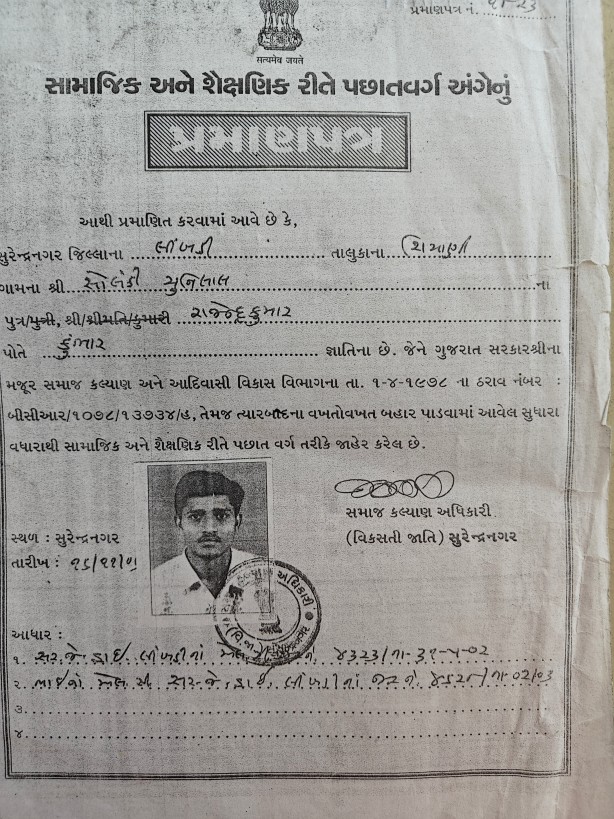 પ્રમાણપત્ર નં.
સત્યમેવ જયતે
સામાજિક અને શૈક્ષણિક રીતે પછાતવર્ગ અંગેનું
પ્રમાણપત્ર
આથી પ્રમાણિત કરવામાં આવે છે કે,
સુરેન્દ્રનગર જિલ્લાના લીંબડી તાલુકાના શિયાણી
ગામના શ્રી સોલંકી સુનિલાલ ના
પુત્ર/પુત્રી, શ્રી/શ્રીમતિ/કુમારી રાજેન્દ્રકુમાર
પોતે કુંભાર જ્ઞાતિના છે. જેને ગુજરાત સરકારશ્રીના
મજૂર સમાજ કલ્યાણ અને આદિવાસી વિકાસ વિભાગના તા. ૧-૪-૧૯૭૮ ના ઠરાવ નંબર :
બીસીઆર/૧૦૭૮/૧૩૭૩૪/હ, તેમજ ત્યારબાદના વખતોવખત બહાર પાડવામાં આવેલ સુધારા
વધારાથી સામાજિક અને શૈક્ષણિક રીતે પછાત વર્ગ તરીકે જાહેર કરેલ છે.
સમાજ કલ્યાણ અધિકારી
સ્થળ : સુરેન્દ્રનગર
(વિકસતી જાતિ) સુરેન્દ્રનગર
તારીખ :
આધાર :
૧. લીંબડીનાં ૪૩૨૩
૨. લીંબડીનાં
૩.
૪.